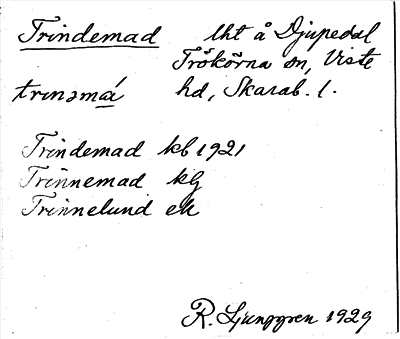 Trindemad lht å Djupedal
Trökörna sn, Viste
trinəmá hd, Skarab. l.
Trindemad kb 1921
Trinnemad kg
Trinnelund ek
R. Ljunggren 1929